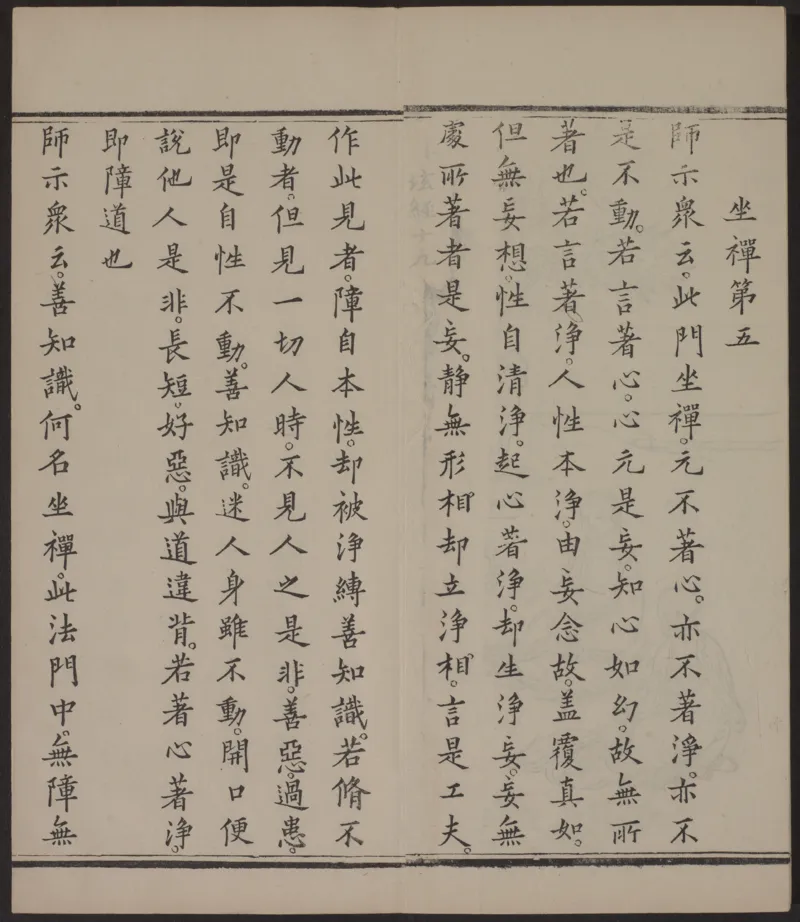 坐禪第五
師示衆云。此門坐禪。元不著心。亦不著淨。亦不
是不動。若言著心。心元是妄。知心如幻。故無所
著也。若言著淨。人性本淨。由妄念故。盖覆真如。
但無妄想。性自清淨。起心著淨。却生淨妄。妄無
處所著者是妄。静無形相却立淨相。言是工夫。
作此見者。障自本性。却被淨縛善知識。若脩不
動者。但見一切人時。不見人之是非。善惡。過患。
即是自性不動。善知識。迷人身雖不動。開口便
說他人是非。長短。好惡。與道違背。若著心著淨。
即障道也
師示衆云。善知識。何名坐禪。此法門中。無障無